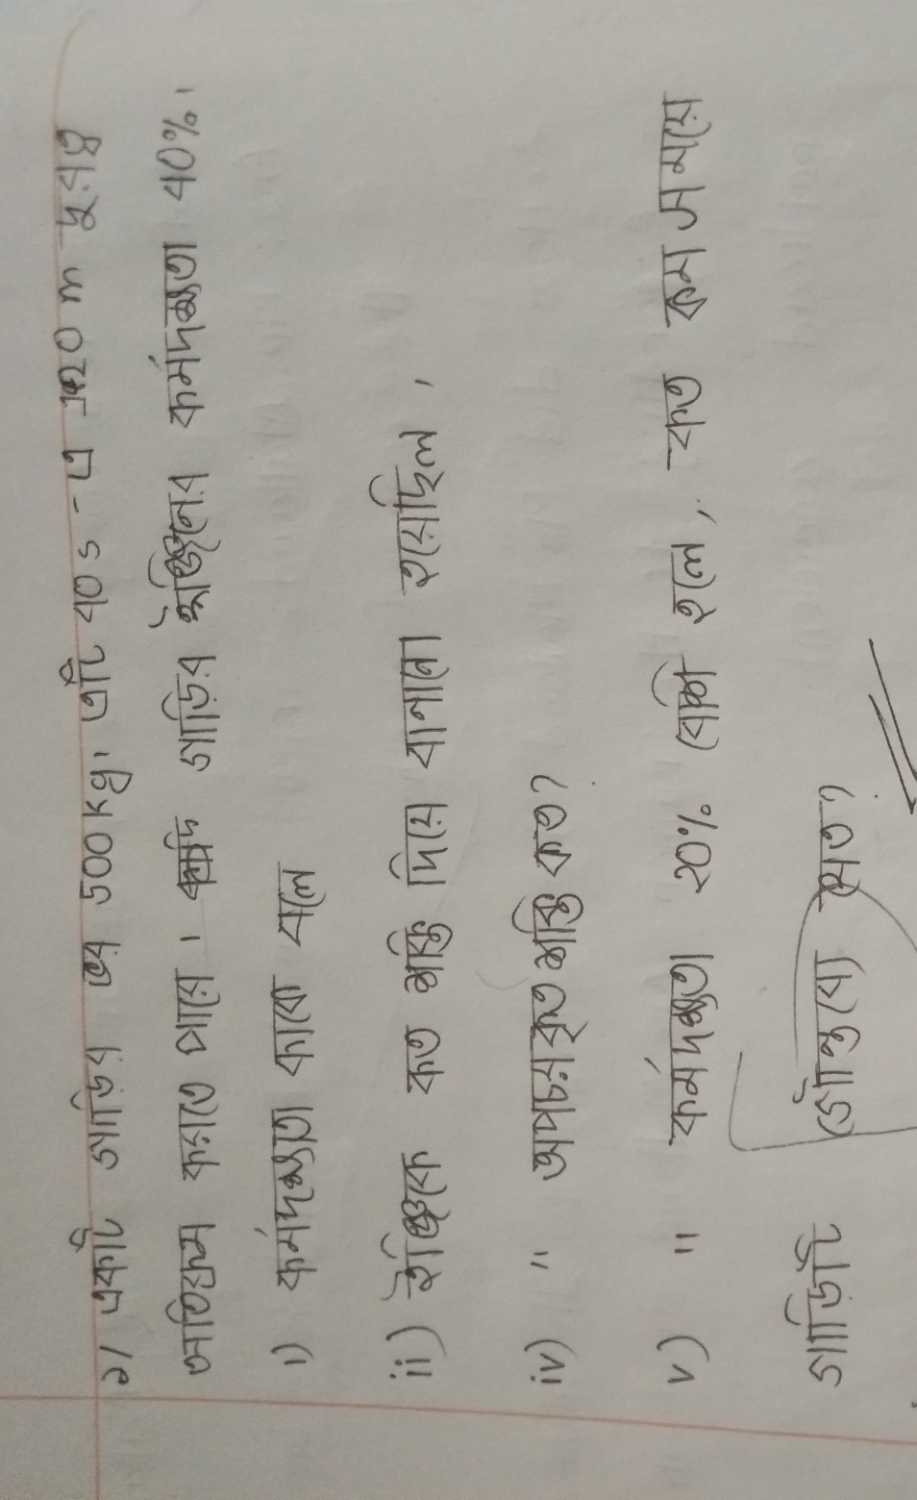 ১/ একটি গাড়ির ভর 500kg। এটি ৭০s - এ ২০ m দূরত্ব
অতিক্রম করতে পারে। গাড়ির ইঞ্জিনের কর্মদক্ষতা ৭০%।
i) কর্মদক্ষতা কাকে বলে
ii) ইঞ্জিনকে কত শক্তি দিয়ে চালনা হয়েছিল।
iv) " অপচয়কৃত শক্তি কত?
v) " কর্মদক্ষতা 20% বৃদ্ধি হলে, কত কম সময়ে
গাড়িটি গন্তব্যে যেত?